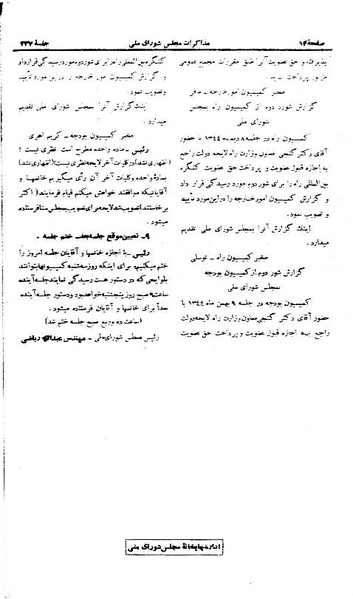 صفحهٔ ۱۴
مذاکرات مجلس شورای ملی
جلسهٔ ۲۳۷
پذیرفته و حق عضویت آنرا طبق مقررات مجمع عمومی
پرداخت
مخبر کمیسیون امور خارجه -
گزارش شور دوم از کمیسیون راه بمجلس
شورای ملی
کمیسیون راه در جلسه ۱۳۴۴ با حضور
آقای دکتر گنجی معاون وزارت راه لایحه دولت راجع
به اجازه قبول عضویت و پرداخت حق عضویت کنگره
بین‌المللی راه را برای شور دوم مورد رسیدگی قرار داد
و گزارش کمیسیون امور خارجه را در این مورد تأیید
و تصویب نمود.
اینک گزارش آنرا بمجلس شورای ملی تقدیم
میدارد.
مخبر کمیسیون راه - توسلی
گزارش شور دوم از کمیسیون بودجه
بمجلس شورای ملی
کمیسیون بودجه در جلسه ۹ بهمن ماه ۱۳۴۴ با
حضور آقای دکتر گنجی معاون وزارت راه لایحه دولت
راجع به اجازه قبول عضویت و پرداخت حق عضویت
کنگره بین‌المللی راه را برای شور دوم مورد رسیدگی قرار داد
و گزارش کمیسیون امور خارجه را در این مورد تأیید
و تصویب نمود.
اینک گزارش آنرا بمجلس شورای ملی تقدیم
میدارد.
مخبر کمیسیون بودجه - کریم اهری
رئیس - ماده واحده مطرح است نظری نیست؟
(اظهاری نشد) در کلیات آخر لایحه نظری نیست؟ (اظهاری نشد)
بماده واحده و کلیات آخر آن رأی میگیریم خانمها و
آقایانیکه موافقند خواهش میکنم قیام فرمایند (اکثر
برخاستند) تصویب شد لایحه برای تصویب بمجلس سنا فرستاده
میشود.
۹ - تعیین موقع جلسه بعد - ختم جلسه -
رئیس - با اجازه خانمها و آقایان جلسه امروز را
ختم میکنیم برای اینکه روز سه شنبه کمیسیونها بتوانند
بلوایحی که در دستور هست رسیدگی نمایند جلسه آینده
ساعت ۹ صبح روز پنجشنبه خواهد بود و دستور جلسه آینده
بعداً برای خانمها و آقایان فرستاده میشود.
(ساعت ده وربع صبح جلسه ختم شد)
رئیس مجلس شورای ملی - مهندس عبدالله ریاضی
اداره چاپخانهٔ مجلس شورای ملی